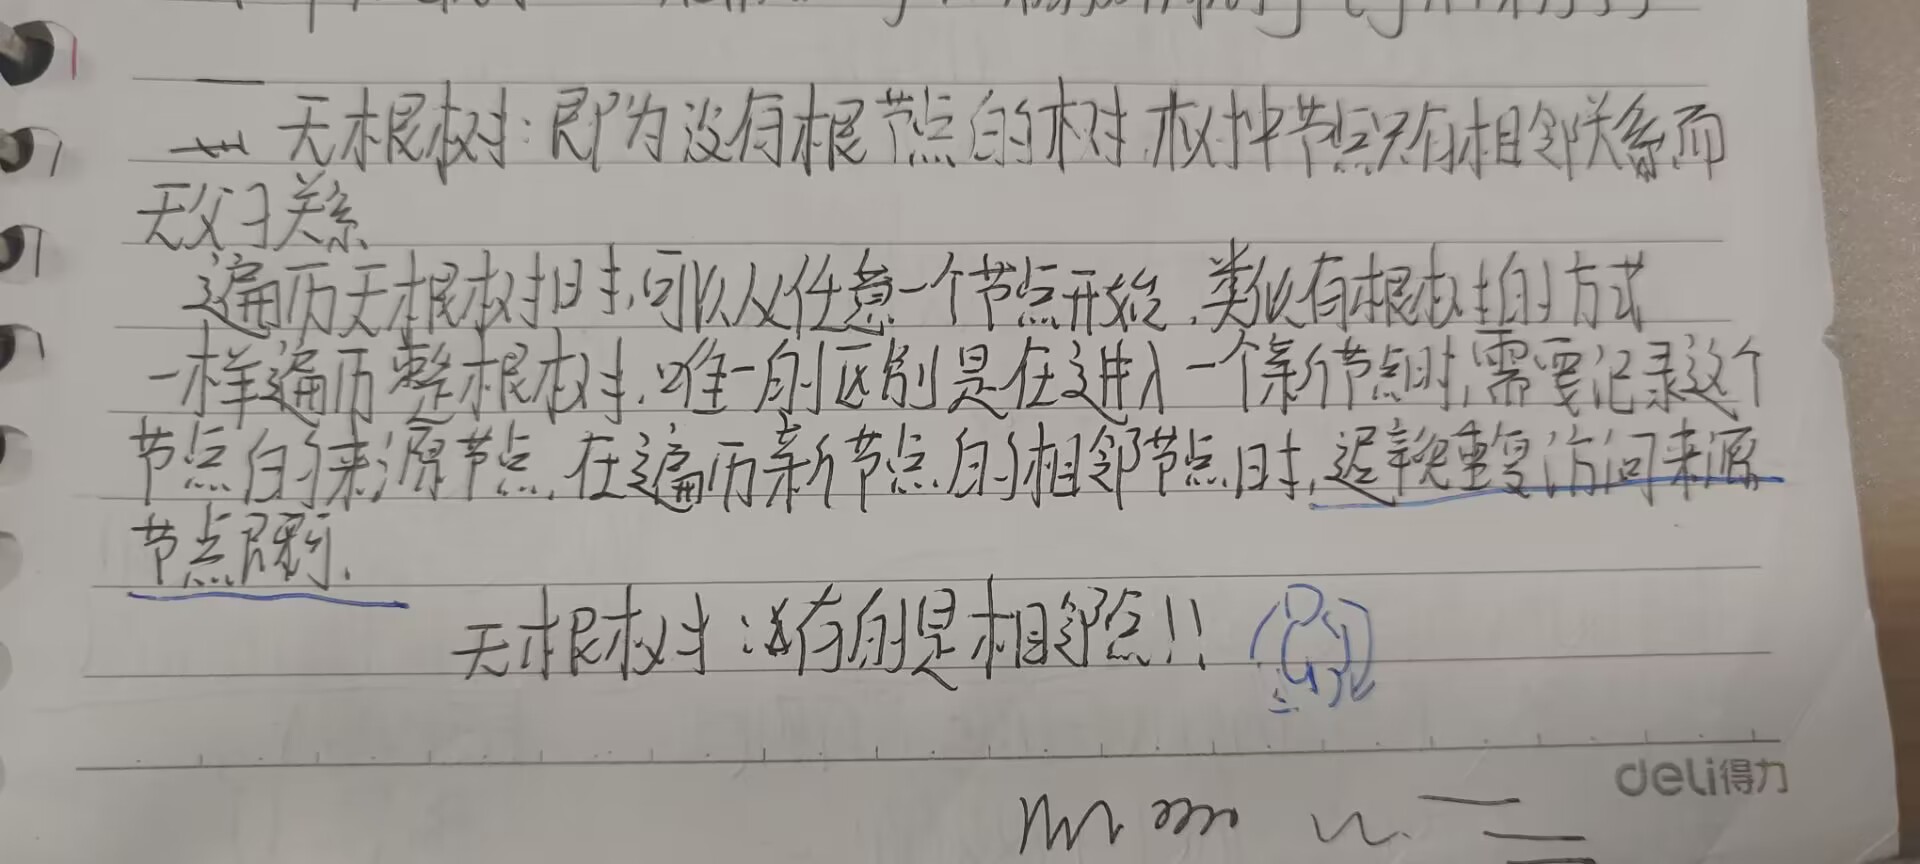 无根树:即为没有根节点的树,树中节点只有相邻关系而
无父子关系
遍历无根树时,可以从任意一个节点开始,类似有根树的方式
一样遍历整根树,唯一的区别是在进入一个新节点时,需要记录这个
节点的来源节点,在遍历新节点的相邻节点时,避免重复访问来源
节点即可.
无根树:没有的是相邻点!!
deli得力